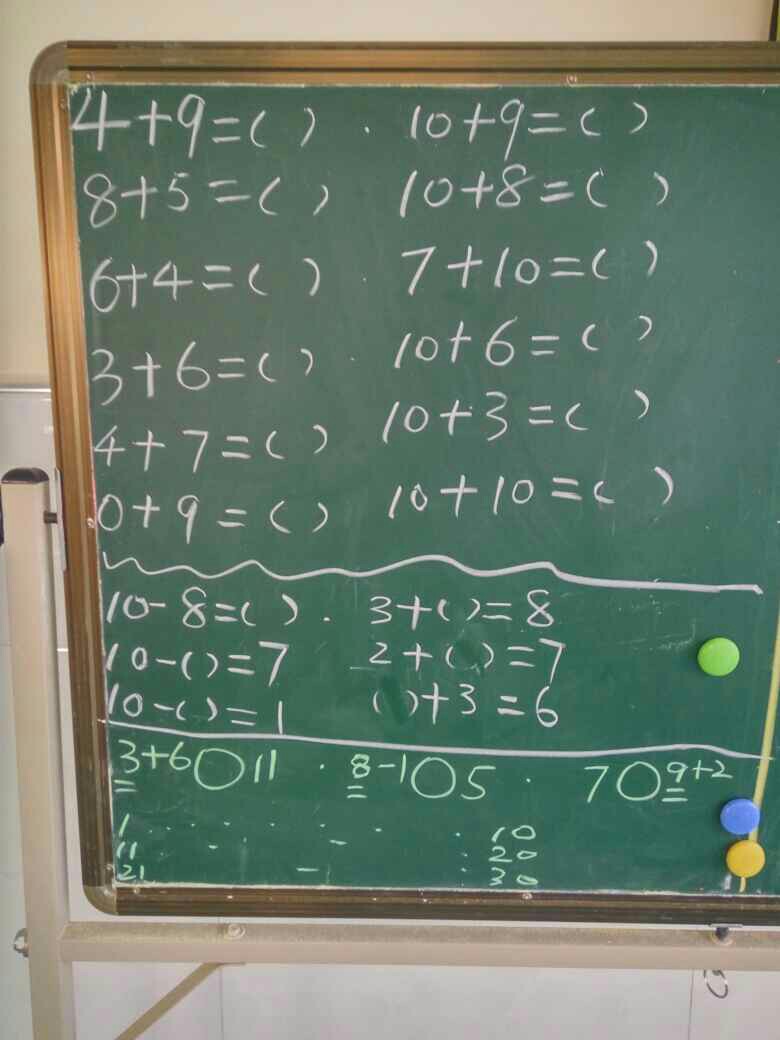 4+9=( ) . 10+9=( )
8+5=( ) 10+8=( )
6+4=( ) . 7+10=( )
3+6=( ) . 10+6=( )
4+7=( ) 10+3=( )
0+9=( ) 10+10=( )
10-8=( ) . 3+( )=8
10-( )=7 2+( )=7
10-( )=1 ( )+3=6
3+6○11 . 8-1○5 . 7○9+2
1 . . . . . . . 10
11 . - - . 20
21 - . 30